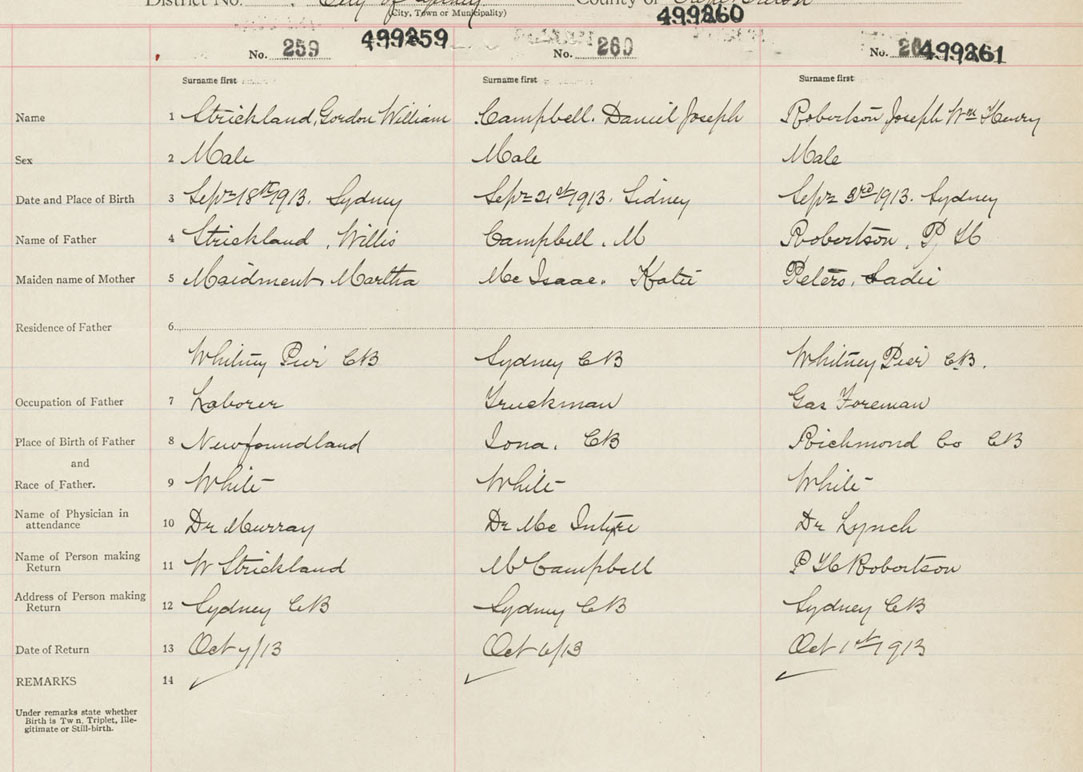 District No. City of Sydney County of Cape Breton
(City, Town or Municipality)
499260
No. 259 499259 No. 260 No. 499261
Surname first Surname first Surname first
Name 1 Strickland, Gordon William Campbell. Daniel Joseph Robertson Joseph Wm Henry
Sex 2 Male Male Male
Date and Place of Birth 3 Sept 18th 1913. Sydney Sept 21st 1913. Sidney Sept 3rd 1913. Sydney
Name of Father 4 Strickland, Willis Campbell. M Robertson, P H
Maiden name of Mother 5 Maidment, Martha Mc Isaac. Katie Peters, Sadie
Residence of Father 6
Whitney Pier CB Sydney CB Whitney Pier CB.
Occupation of Father 7 Laborer Truckman Gas Foreman
Place of Birth of Father 8 Newfoundland Iona. CB Richmond Co CB
and
Race of Father. 9 White White White
Name of Physician in
attendance 10 Dr Murray Dr Mc Intyre Dr Lynch
Name of Person making
Return 11 W Strickland M Campbell P H Robertson
Address of Person making
Return 12 Sydney CB Sydney CB Sydney CB
Date of Return 13 Oct 7/13 Oct 6/13 Oct 1st 1913
REMARKS 14
Under remarks state whether
Birth is Tw n, Triplet, Ille-
gitimate or Still-birth.